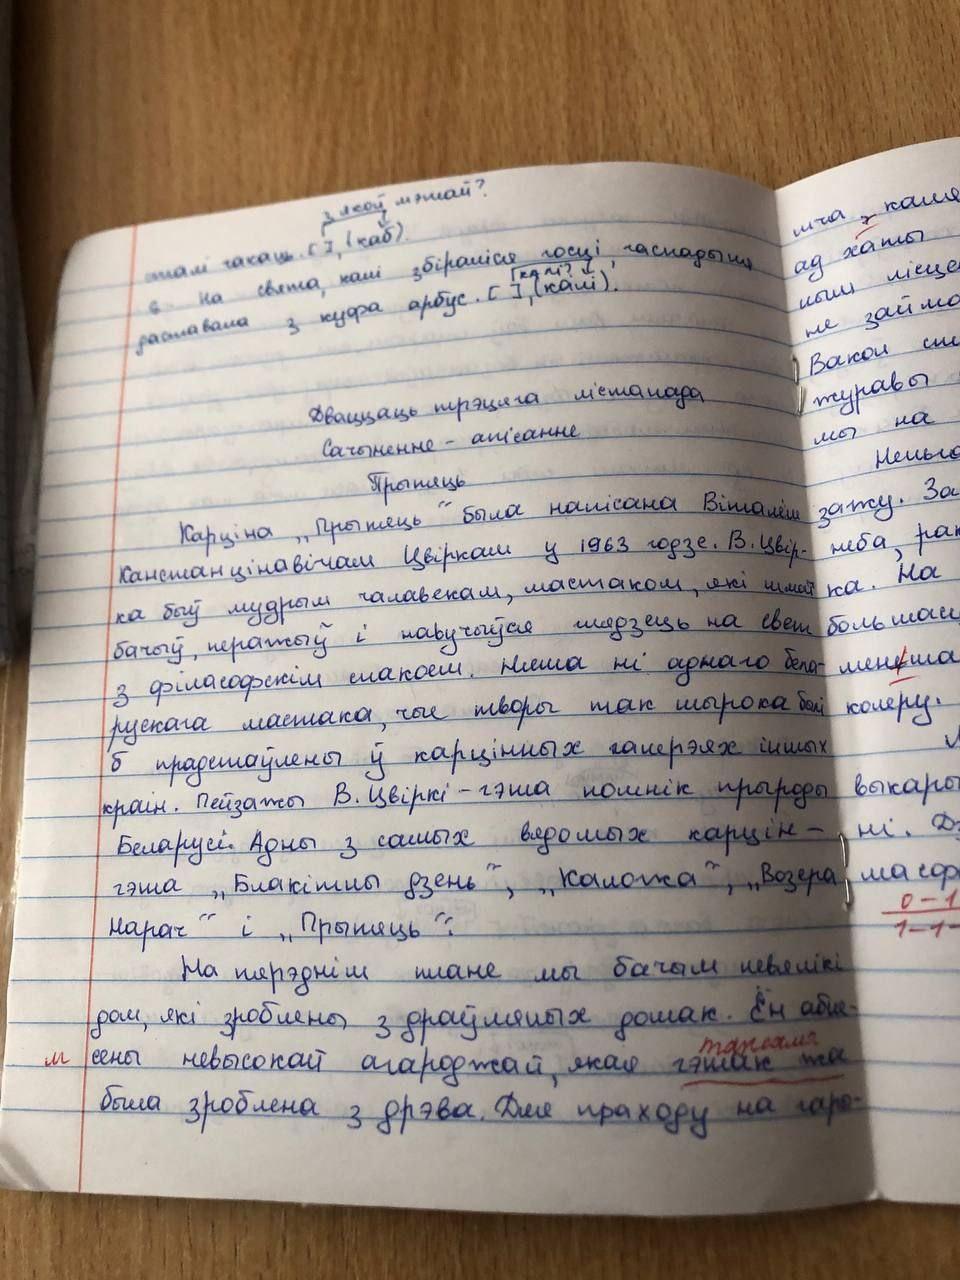 з якой мэтай?
сталі чакаць. [ ], (каб).
[калі?
6 На свята, калі збіраліся госці, гаспадыня
даставала з куфа арбус. [ ], (калі).
Дваццаць трэцяга лістапада
Сачыненне - апісанне
Прыпяць
Карціна „Прыпяць“ была напісана Віталём
Канстанцінавічам Цвіркам у 1963 годзе. В. Цвір-
ка быў мудрым чалавекам, мастаком, які шмат
бачыў, перажыў і навучыўся глядзець на свет
з філасофскім спакоем. Няма ні аднаго бела-
рускага мастака, чые творы так шырока былі
б прадстаўлены ў карцінных галерэях іншых
краін. Пейзажы В. Цвіркі - гэта помнік прыроды
Беларусі. Адны з самых вядомых карцін -
гэта „Блакітны дзень“, „Калотка“, „Возера
Нарач“ і „Прыпяць“.
На пярэднім плане мы бачым невялікі
дом, які зроблены з драўляных дошак. Ён абне-
таксама
м сены невысокай агароджай, якая гэтак жа
была зроблена з дрэва. Для праходу на гаро-
тча, каля
ад хаты
ным месце
не займа
Вакол
журавы
мы на
Нельга
зажу. За
неба, рак
ка. На
больша
менша
колеру.
выкары
ні. Д
масор
0-1
1-1-